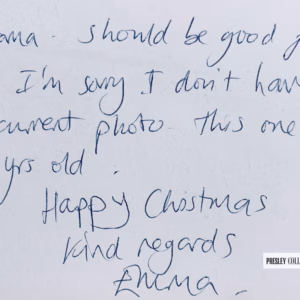 ama - should be good f
I'm sorry I don't hav
current photo. This one
yrs old.
Happy Christmas
Kind regards
Emma
PRESLEY COLL